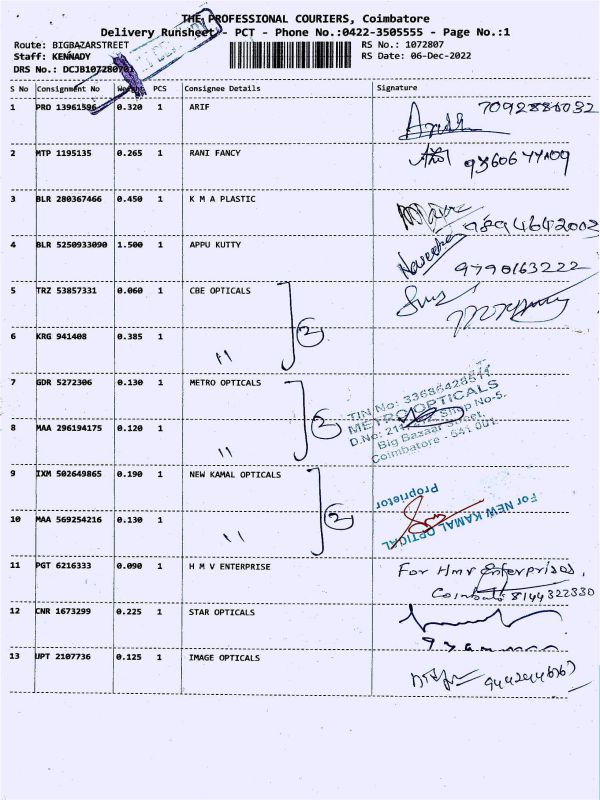 THE PROFESSIONAL COURIERS, Coimbatore
Delivery Runsheet - PCT - Phone No.:0422-3505555 - Page No.:1
Route: BIGBAZARSTREET RS No.: 1072807
Staff: KENNADY RS Date: 06-Dec-2022
DRS No.: DCJB107280701
S No Consignment No Weight PCS Consignee Details Signature
1 PRO 13961596 0.320 1 ARIF 7092886032
2 MTP 1195135 0.265 1 RANI FANCY
3 BLR 280367466 0.450 1 K M A PLASTIC 9894642002
4 BLR 5250933090 1.500 1 APPU KUTTY 9790163222
5 TRZ 53857331 0.060 1 CBE OPTICALS
2
6 KRG 941408 0.385 1 "
7 GDR 5272306 0.130 1 METRO OPTICALS
TIN No: 33686428511
METRO OPTICALS
D.No: Shop No-5.
8 MAA 296194175 0.120 1 " 2
Big Bazaar Street,
Coimbatore - 641 001.
9 IXM 502649865 0.190 1 NEW KAMAL OPTICALS
For NEW KAMAL OPTICAL
Proprietor
10 MAA 569254216 0.130 1 " 2
11 PGT 6216333 0.090 1 H M V ENTERPRISE For Hmv Enterprises,
8144322330
12 CNR 1673299 0.225 1 STAR OPTICALS
13 UPT 2107736 0.125 1 IMAGE OPTICALS